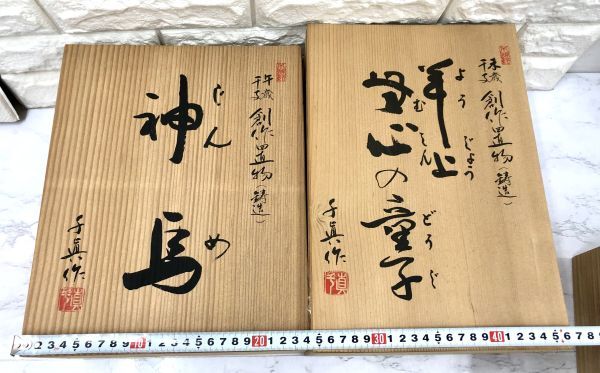 午歳
干支
創作置物(鋳造)
神馬
じんめ
千眞作
未歳
干支
創作置物(鋳造)
羊上
ようじょう
無心の童子
むしん どうじ
千眞作
2 3 4 5 6 7 8 9 10 1 2 3 4 5 6 7 8 9 20 1 2 3 4 5 6 7 8 9 30 1 2 3 4 5 6 7 8 9 40 1 2 3 4 5 6 7 8 9